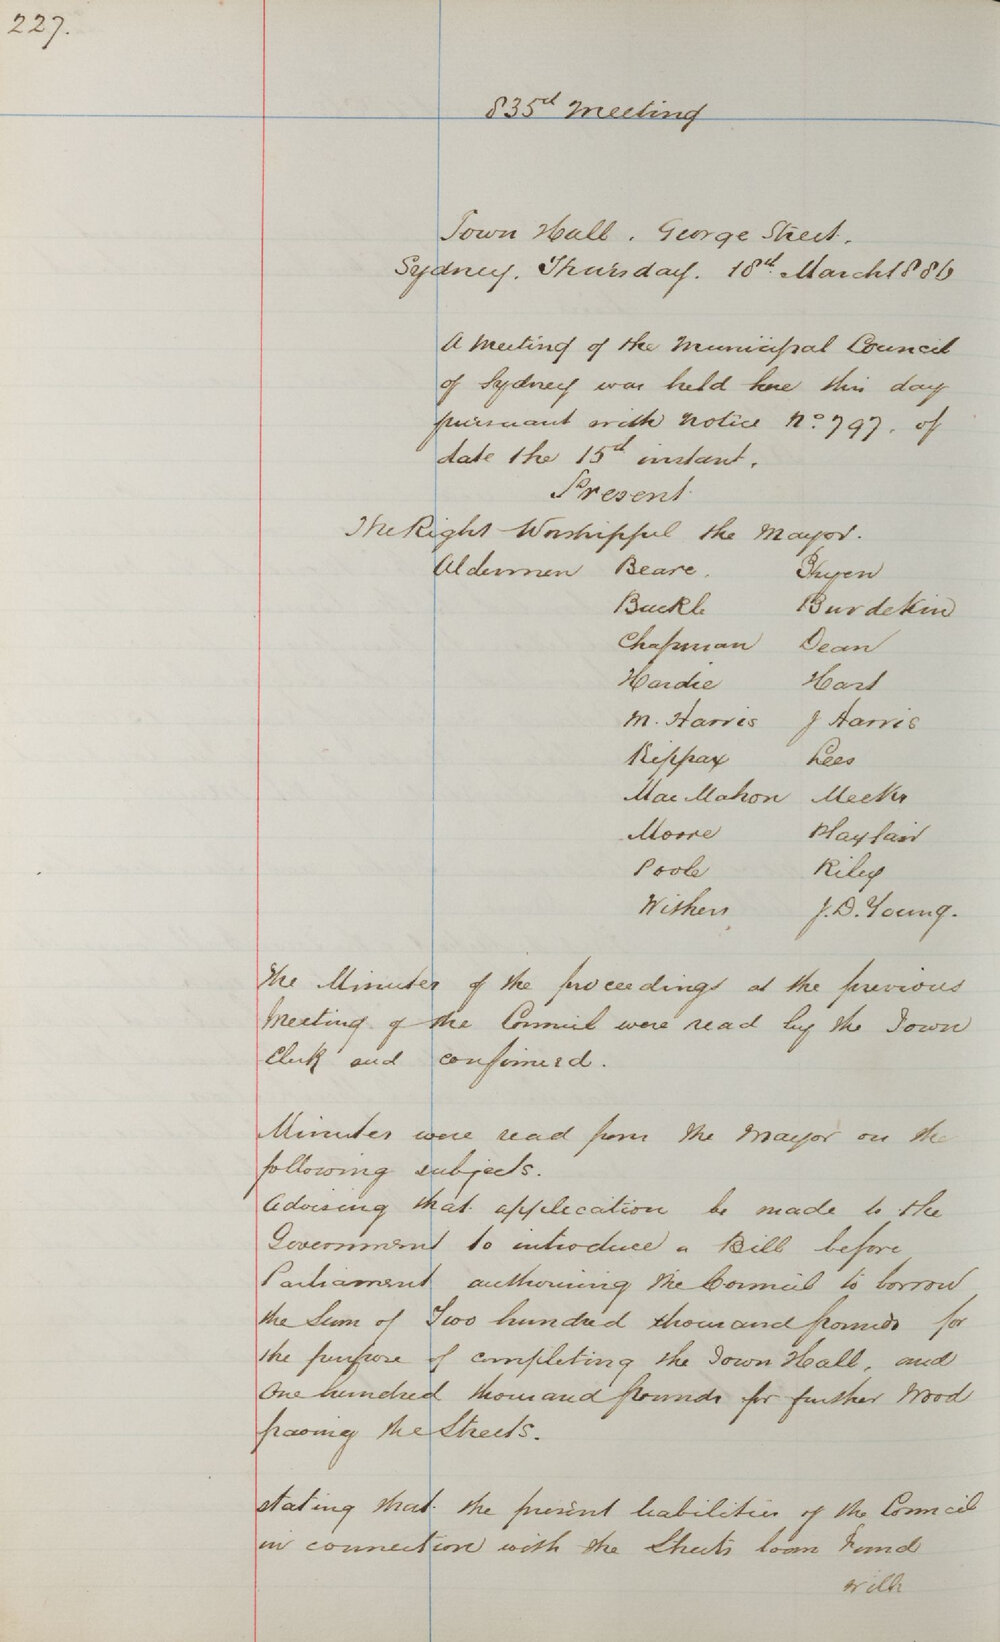 227.
835d Meeting
Town Hall. George Street.
Sydney. Thursday. 18d. March 1886
A Meeting of the Municipal Council
of Sydney was held here this day
pursuant with Notice No 797. of
date the 15d instant.
Present
The Right Worshipful the Mayor.
Aldermen Beare. Gryen
Buckle Burdekin
Chapman Dean
Hardie Hart
M. Harris J Harris
Kippax Lees
MacMahon Meeks
Moore Playfair
Poole Riley
Withers J.D. Young.
The Minutes of the proceedings at the previous
Meeting of the Council were read by the Town
Clerk and confirmed.
Minutes were read from the Mayor on the
following subjects.
Advising that application be made to the
Government to introduce a Bill before
Parliament authorising the Council to borrow
the Sum of Two hundred thousand pounds for
the purpose of completing the Town Hall, and
One hundred thousand pounds for further Wood
paving the Streets.
Stating that the present liabilities of the Council
in connection with the Streets loan Fund
will